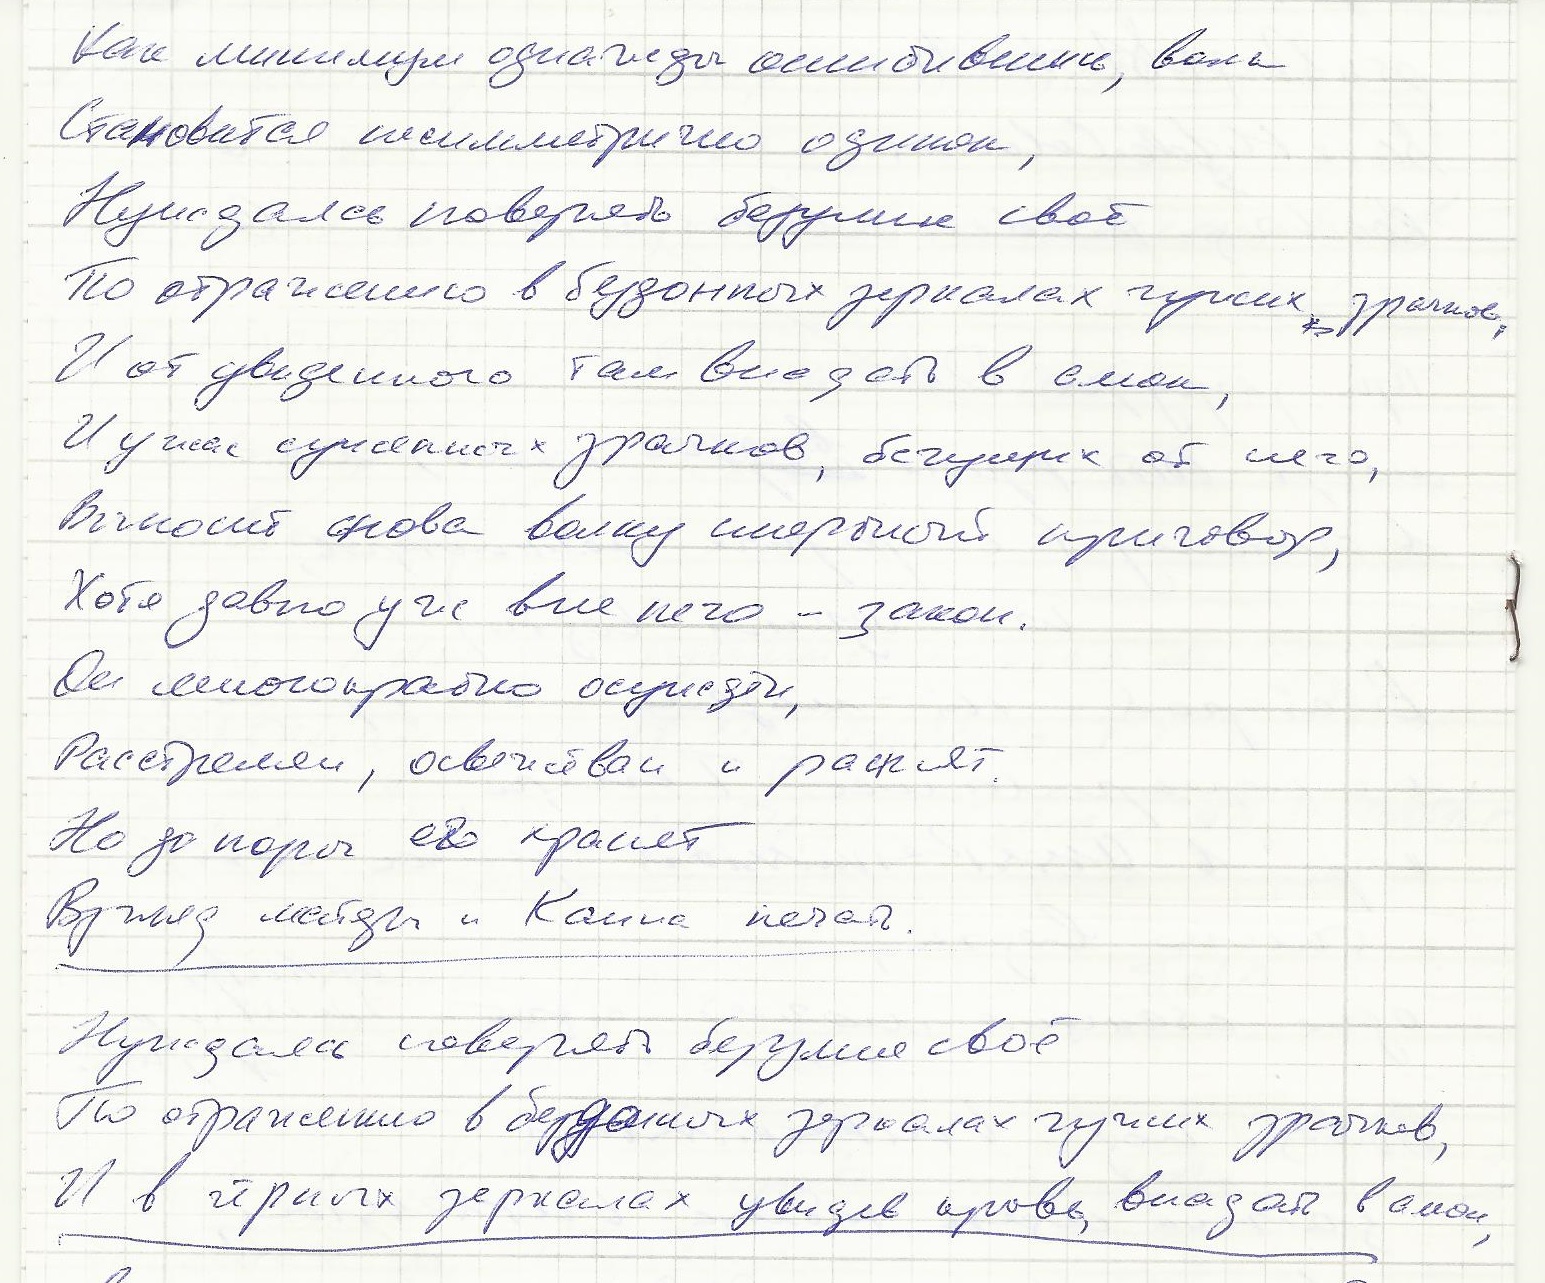 Как минимум однажды ошибившись, волк
Становится несимметрично одинок,
Нуждаясь поверять безумие своё
По отражению в бездонных зеркалах чужих зрачков,
И от увиденного там впадать в амок,
И ужас суженных зрачков, бегущих от него,
Выносит снова волку смертный приговор,
Хотя давно уже вне него – закон.
Он многократно осуждён,
Расстрелян, освежёван и распят.
Но до поры его хранят
Взгляд майды и Каина печать.
Нуждаясь поверять безумие своё
По отражению в бездонных зеркалах чужих зрачков,
И в чёрных зеркалах увидев кровь, впадать в амок,